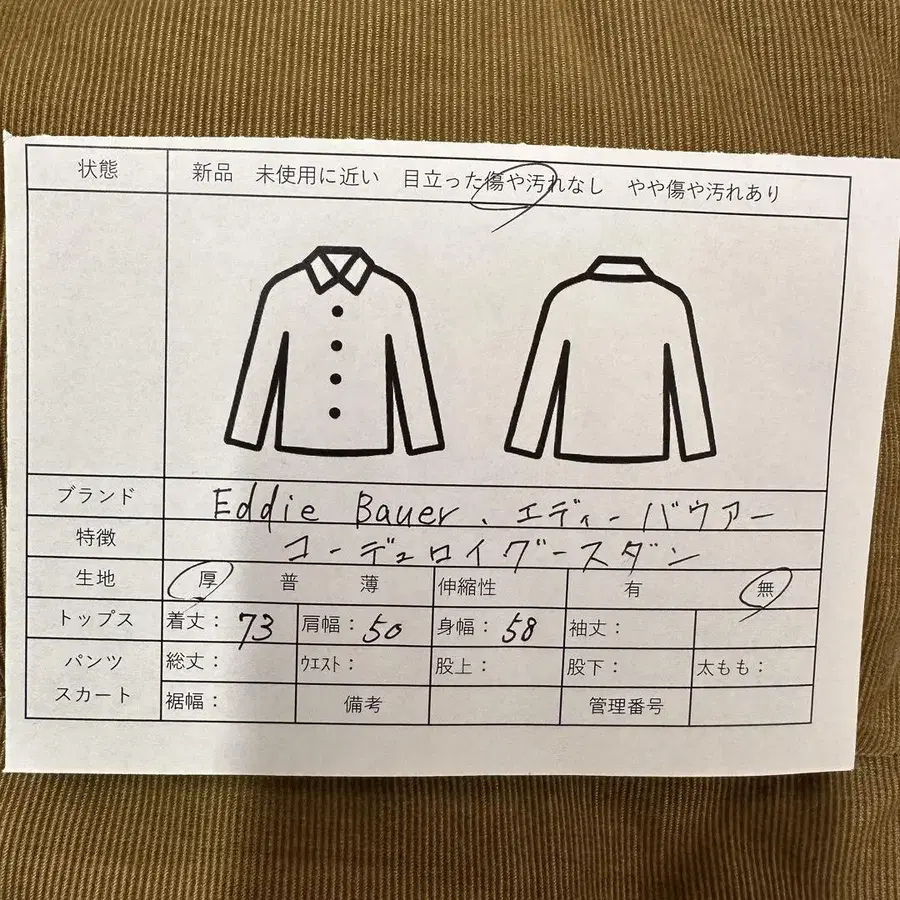 状態 新品 未使用に近い 目立った傷や汚れなし やや傷や汚れあり
ブランド Eddie Bauer、エディーバウアー
特徴 コーデュロイグースダン
生地 厚 普 薄 伸縮性 有 無
トップス 着丈：73 肩幅：50 身幅：58 袖丈：
パンツ 総丈： ウエスト： 股上： 股下： 太もも：
スカート 裾幅： 備考 管理番号